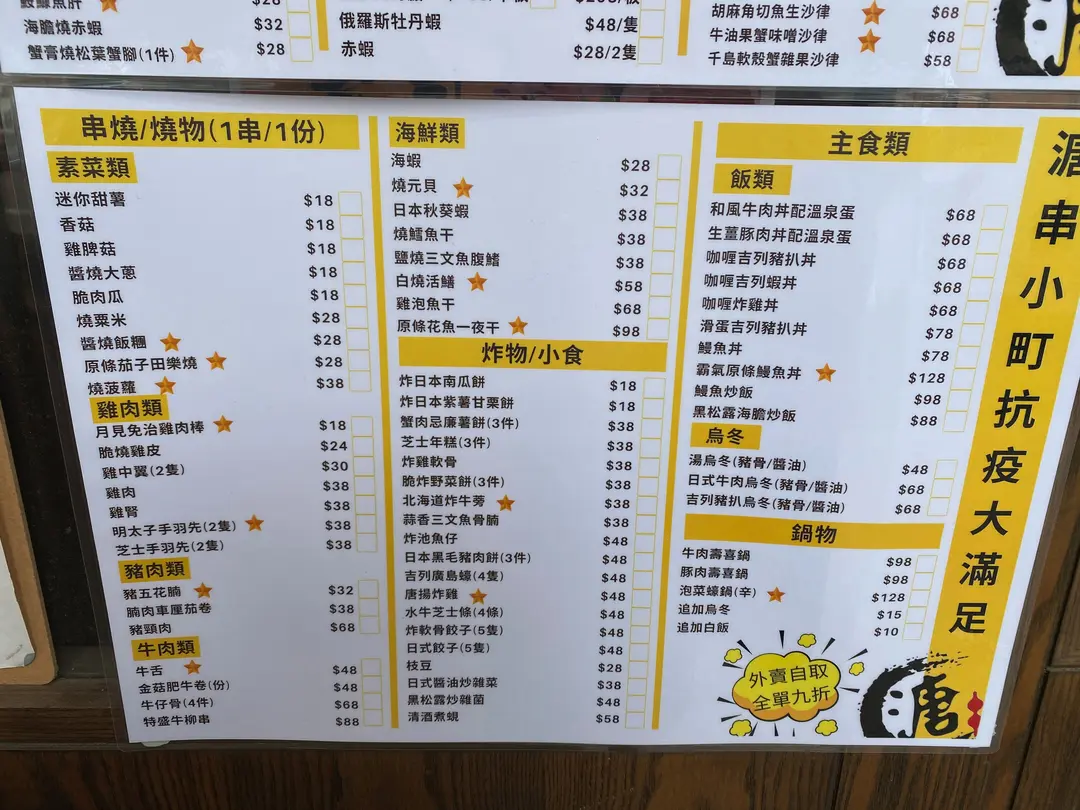 $28
海膽燒赤蝦 $32
蟹膏燒松葉蟹腳(1件) $28
俄羅斯牡丹蝦 $48/隻
赤蝦 $28/2隻
胡麻角切魚生沙律 $68
牛油果蟹味噌沙律 $68
千島軟殼蟹雜果沙律 $58
串燒/燒物(1串/1份)
素菜類
迷你甜薯 $18
香菇 $18
雞脾菇 $18
醬燒大蔥 $18
脆肉瓜 $18
燒粟米 $28
醬燒飯糰 $28
原條茄子田樂燒 $28
燒菠蘿 $38
雞肉類
月見免治雞肉棒 $18
脆燒雞皮 $24
雞中翼(2隻) $30
雞肉 $38
雞腎 $38
明太子手羽先(2隻) $38
芝士手羽先(2隻) $38
豬肉類
豬五花腩 $32
腩肉車厘茄卷 $38
豬頸肉 $68
牛肉類
牛舌 $48
金菇肥牛卷(份) $48
牛仔骨(4件) $68
特盛牛柳串 $88
海鮮類
海蝦 $28
燒元貝 $32
日本秋葵蝦 $38
燒鱈魚干 $38
鹽燒三文魚腹鰭 $38
白燒活鱔 $58
雞泡魚干 $68
原條花魚一夜干 $98
炸物/小食
炸日本南瓜餅 $18
炸日本紫薯甘栗餅 $18
蟹肉忌廉薯餅(3件) $38
芝士年糕(3件) $38
炸雞軟骨 $38
脆炸野菜餅(3件) $38
北海道炸牛蒡 $38
蒜香三文魚骨腩 $38
炸池魚仔 $48
日本黑毛豬肉餅(3件) $48
吉列廣島蠔(4隻) $48
唐揚炸雞 $48
水牛芝士條(4條) $48
炸軟骨餃子(5隻) $48
日式餃子(5隻) $48
枝豆 $28
日式醬油炒雜菜 $38
黑松露炒雜菌 $48
清酒煮蜆 $58
主食類
飯類
和風牛肉丼配溫泉蛋 $68
生薑豚肉丼配溫泉蛋 $68
咖喱吉列豬扒丼 $68
咖喱吉列蝦丼 $68
咖喱炸雞丼 $68
滑蛋吉列豬扒丼 $78
鰻魚丼 $78
霸氣原條鰻魚丼 $128
鰻魚炒飯 $98
黑松露海膽炒飯 $88
烏冬
湯烏冬(豬骨/醬油) $48
日式牛肉烏冬(豬骨/醬油) $68
吉列豬扒烏冬(豬骨/醬油) $68
鍋物
牛肉壽喜鍋 $98
豚肉壽喜鍋 $98
泡菜蠔鍋(辛) $128
追加烏冬 $15
追加白飯 $10
外賣自取
全單九折
串小町抗疫大滿足